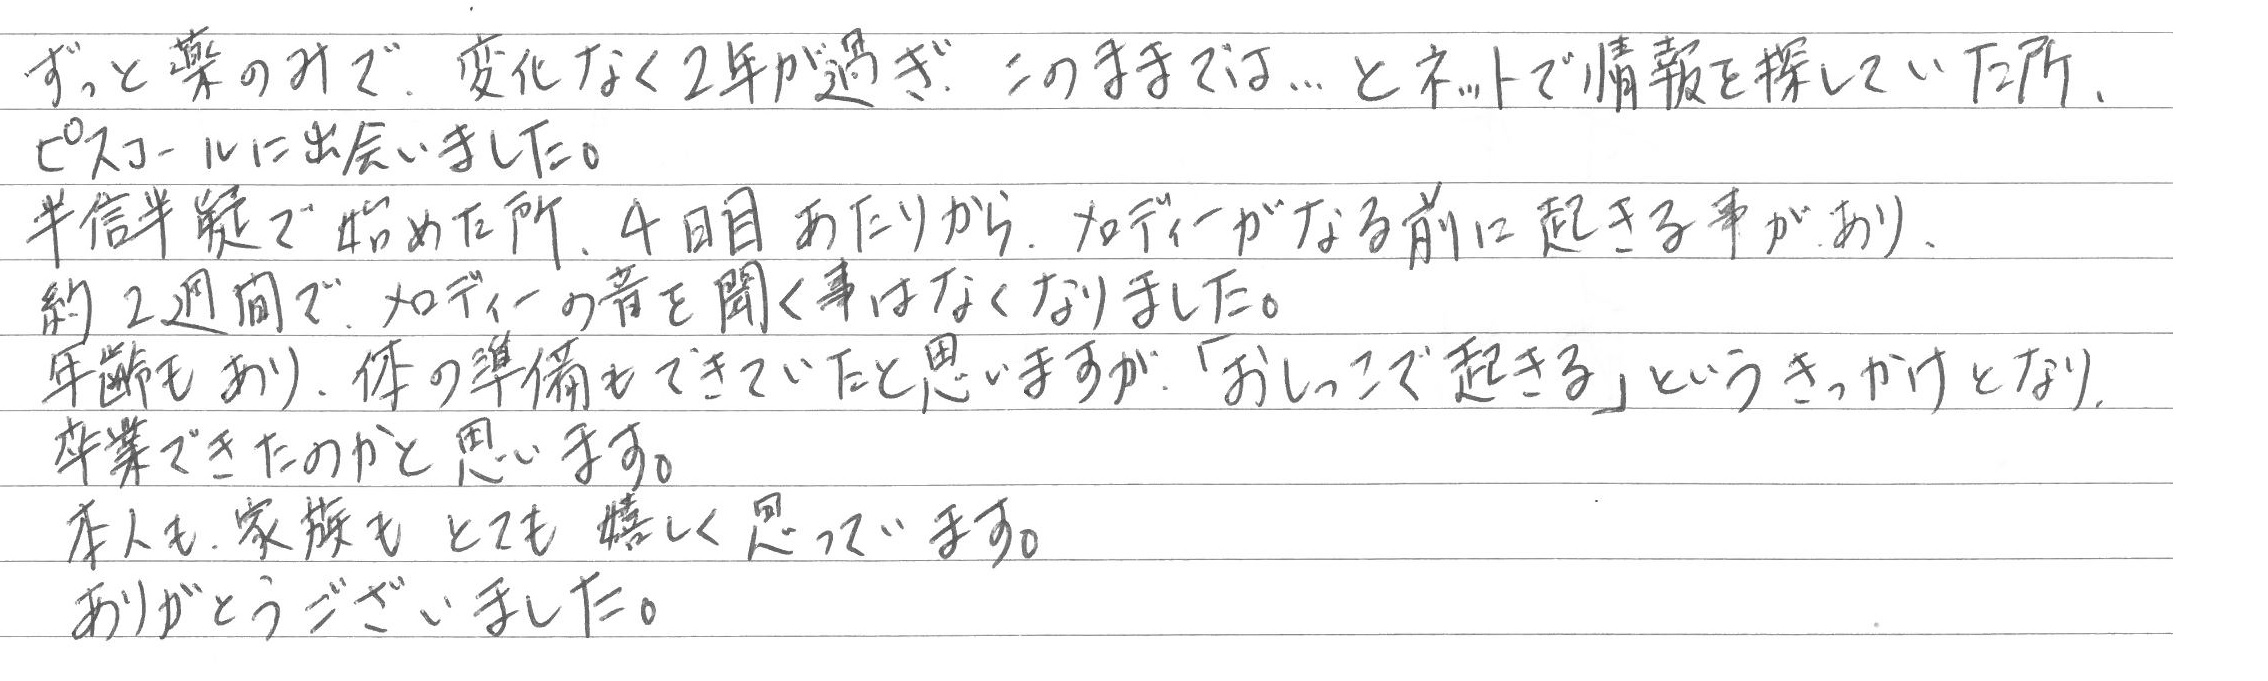 ずっと薬のみで、変化なく2年が過ぎ、このままでは…とネットで情報を探していた所、
ピスコールに出会いました。
半信半疑で始めた所、4日目あたりから、メロディーがなる前に起きる事があり、
約2週間で、メロディーの音を聞く事はなくなりました。
年齢もあり、体の準備もできていたと思いますが、「おしっこで起きる」というきっかけとなり、
卒業できたのかと思います。
本人も、家族もとても嬉しく思っています。
ありがとうございました。